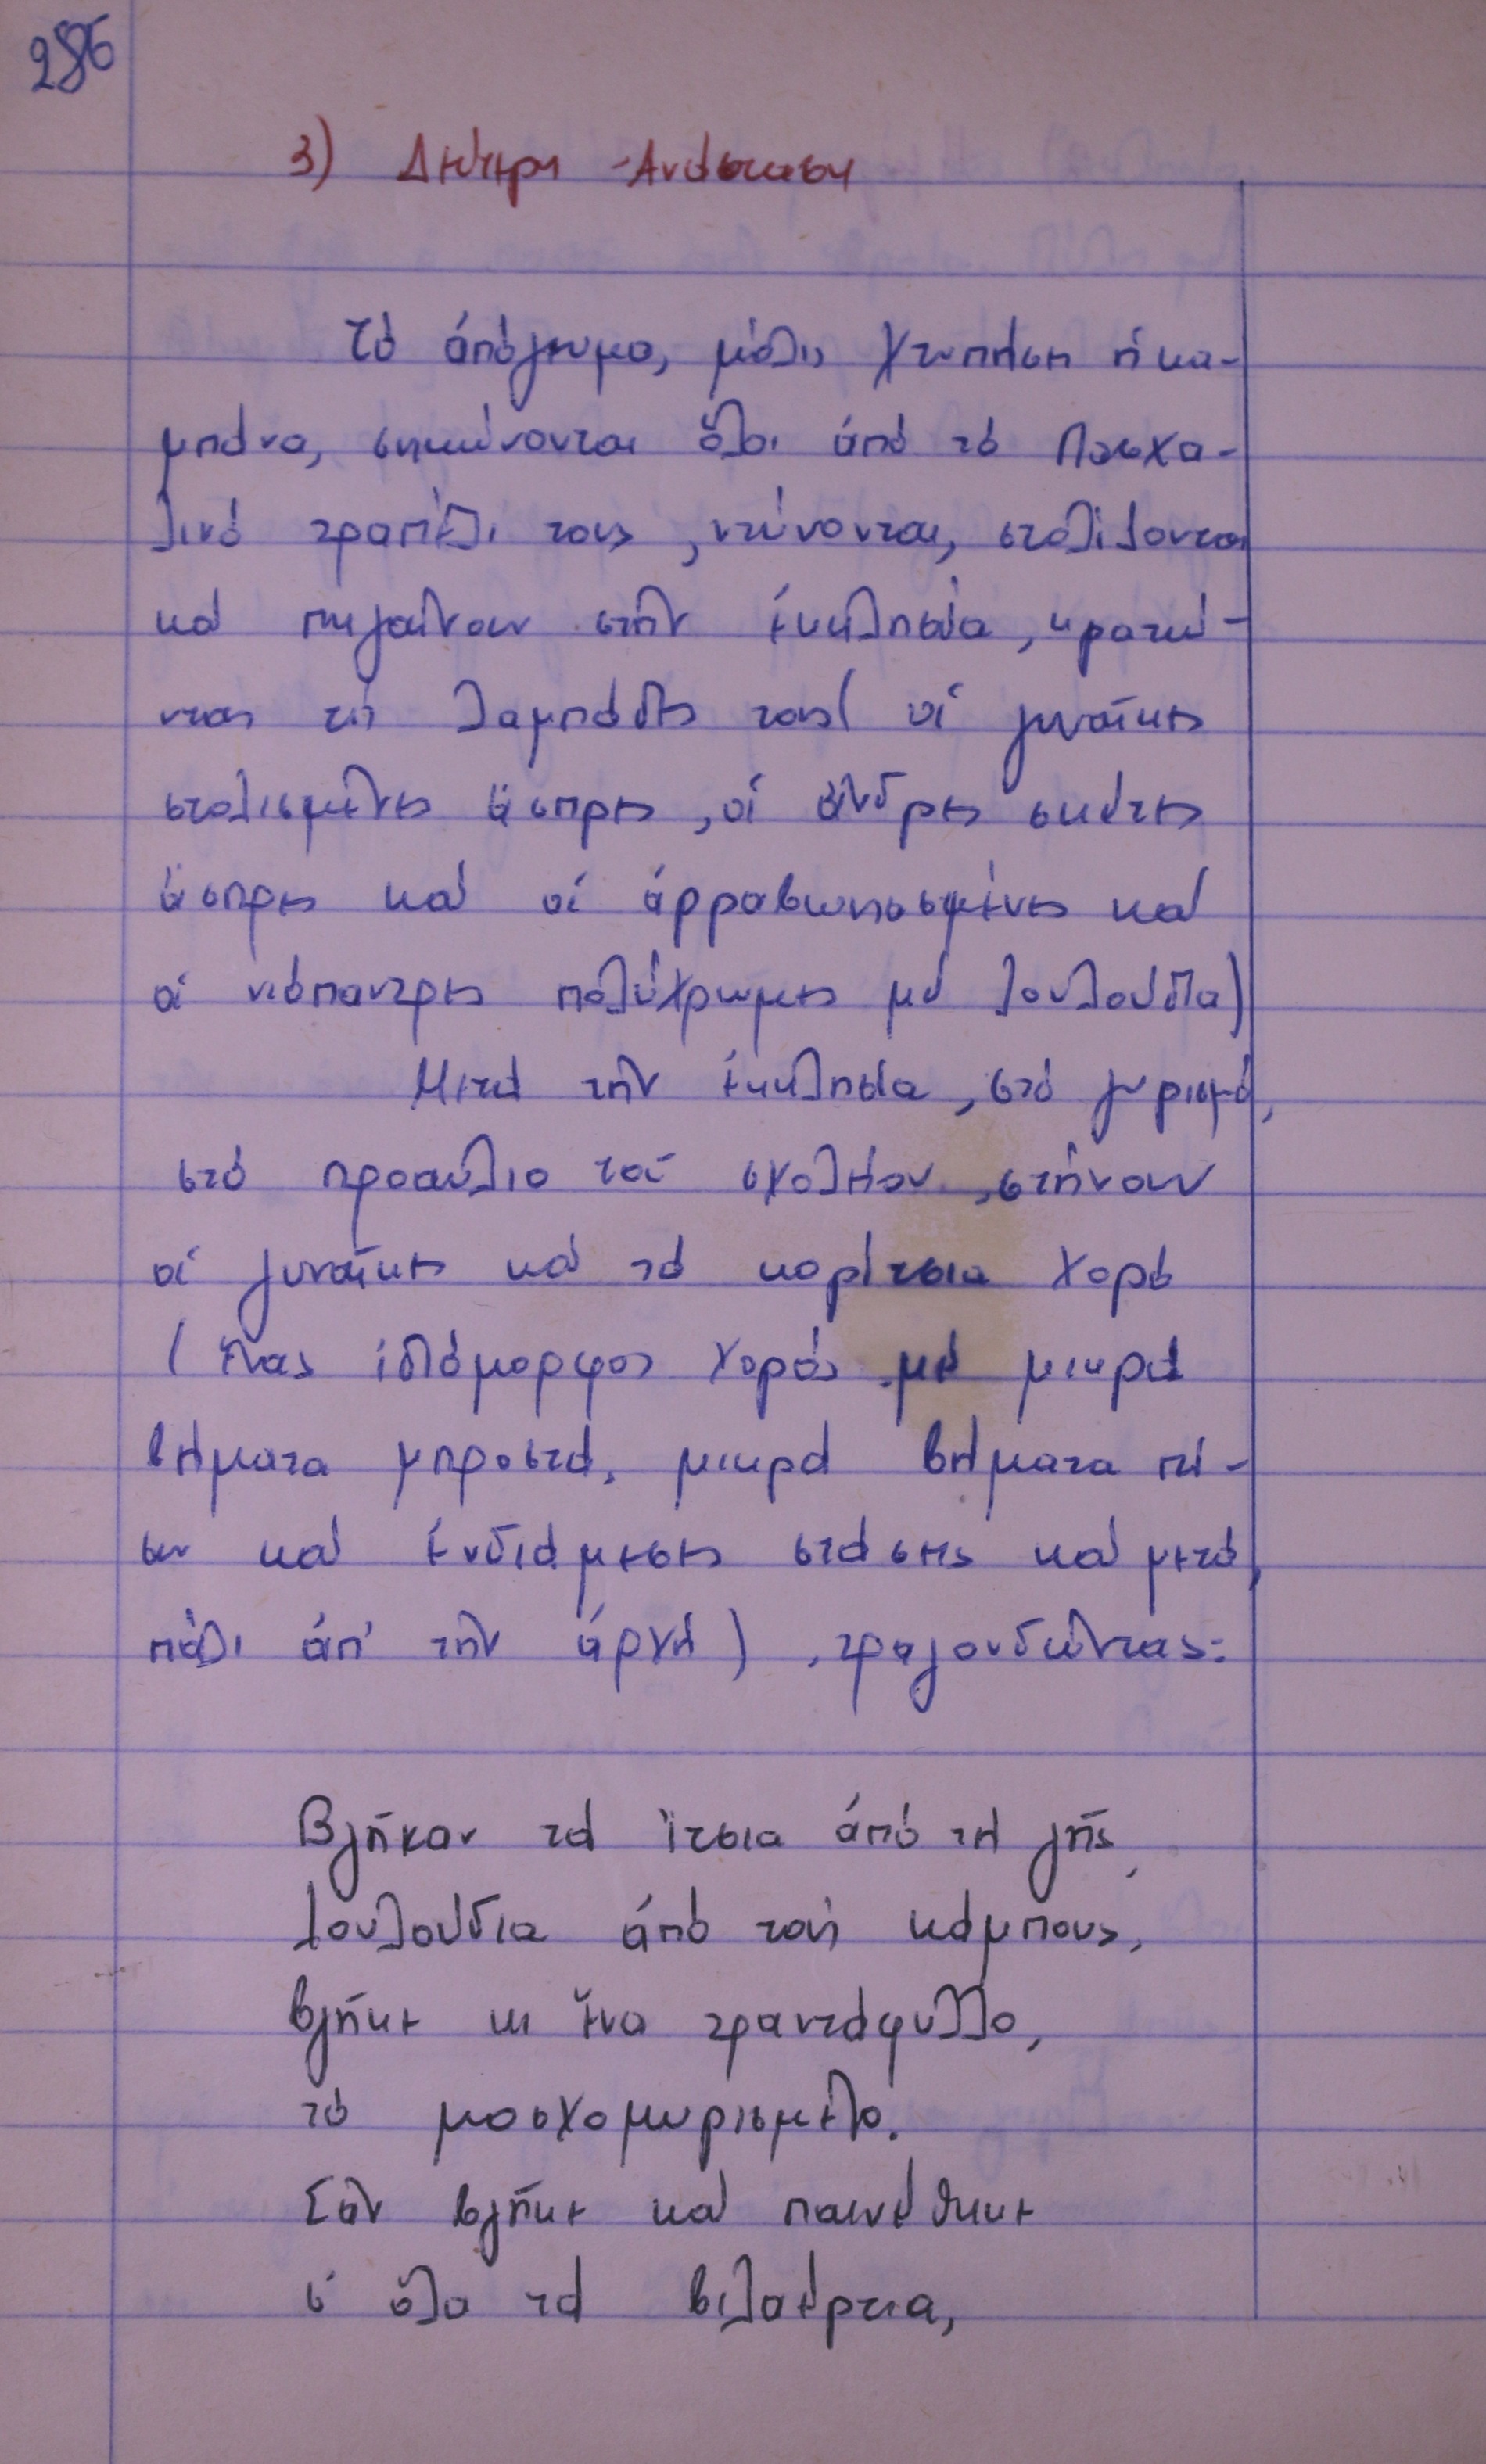 286
3) Δεύτερη Ἀνάσταση
Τό ἀπόγευμα, μόλις χτυπήσει ἡ κα-
μπάνα, σηκώνονται ὅλοι ἀπό τό Πασχα-
λινό τραπέζι τους, ντύνονται, στολίζονται
καί πηγαίνουν στήν ἐκκλησία, κρατώ-
ντας τίς λαμπάδες τους (οἱ γυναῖκες
στολισμένες ἄσπρες, οἱ ἄνδρες σκέτες
ἄσπρες καί οἱ ἀρραβωνιασμένες καί
οἱ νιόπαντρες πολύχρωμες μέ λουλούδια)
Μετά τήν ἐκκλησία, στό γυρισμό,
στό προαύλιο τοῦ σχολείου, στήνουν
οἱ γυναῖκες καί τά κορίτσια χορό
(ἕνας ἰδιόμορφος χορός μέ μικρά
βήματα μπροστά, μικρά βήματα πί-
σω καί ἐνδιάμεσες στάσεις καί μετά,
πάλι ἀπ' τήν ἀρχή), τραγουδώντας:
Βγῆκαν τά ἴτσια ἀπό τή γῆς,
λουλούδια ἀπό τούς κάμπους,
βγῆκε κι ἕνα τραντάφυλλο,
τό μοσχομυρισμένο.
Σάν βγῆκε καί παινέθηκε
σ' ὅλα τά βιλαέρτια,